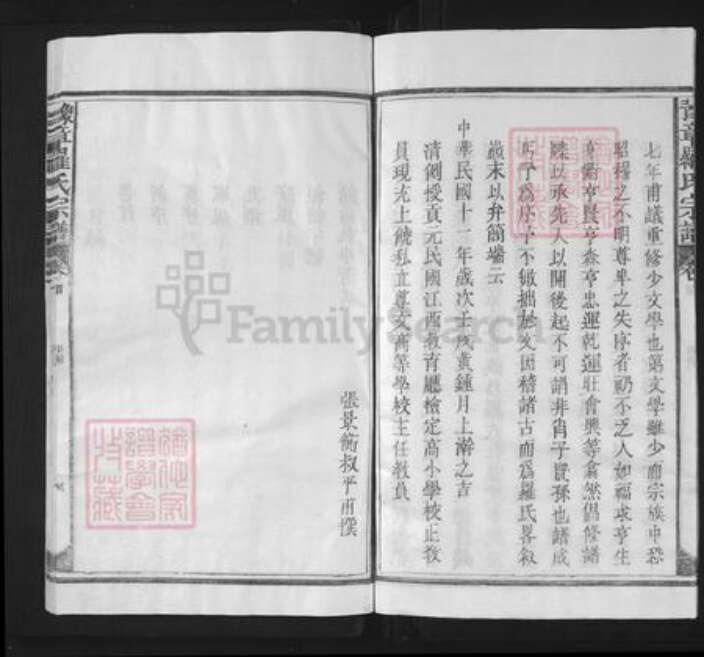 七年甫議重修少文學也第文學雖少而宗族中恐
昭穆之不明尊卑之失序者仍不乏人如福求亨生
亨衡亨畏亨森亨忠運乾運壯會興等翕然倡修譜
牒以承先人以開後起不可謂非肖子賢孫也譜成
予為序予不敏拙於文因稽諸古而為羅氏畧敘
巔末以弁簡端云
中華民國十一年歲次壬戌黃鍾月上澣之吉
清例授貢元民國江西教育廳檢定高小學校正教
員現充上饒私立尊文高等學校主任教員
張景衡叔平甫撰
豫章羅氏宗譜
卷首
豫章羅氏宗譜
FamilySearch